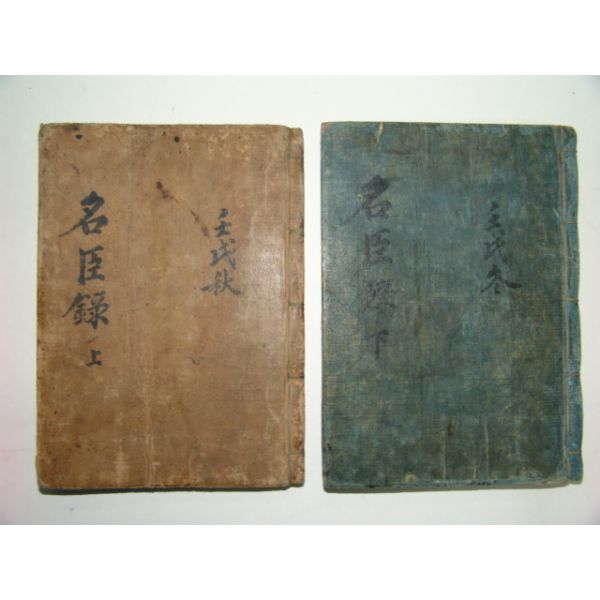 壬戌秋
名臣錄 上
壬戌冬
名臣錄 下